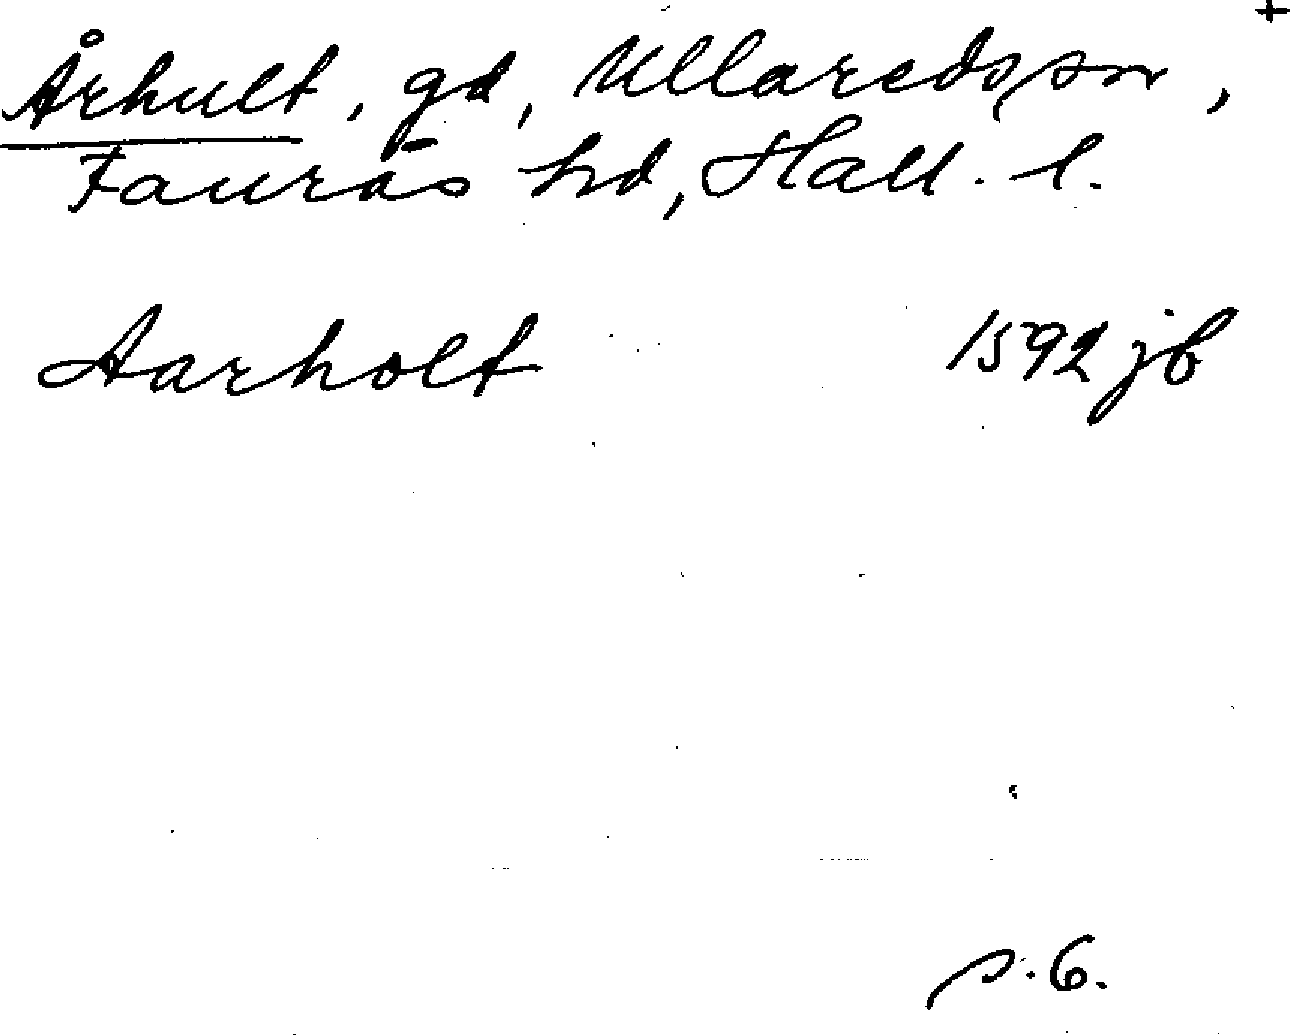 +
Århult, gd, Ullareds sn,
Faurås hd, Hall. l.
Aarholt 1592 jb
s. 6.